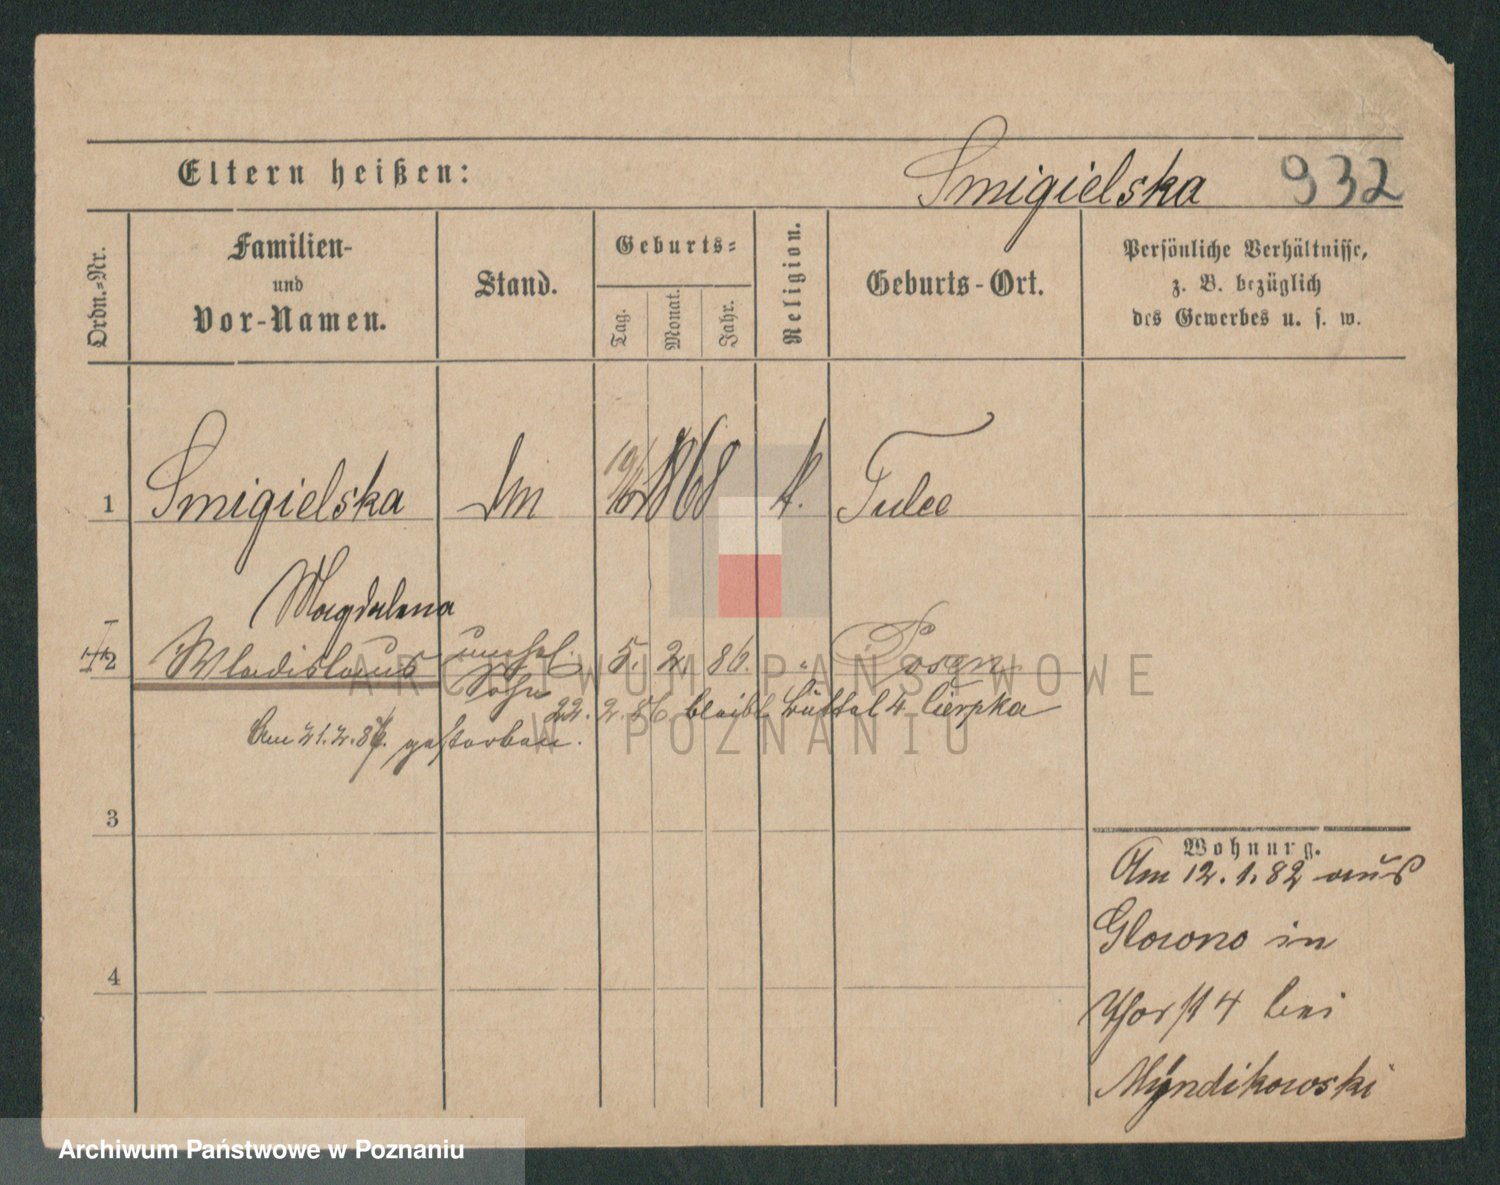 Eltern heißen:
Smigielska 932
Ordn.-Nr.
Familien-
und
Vor-Namen.
Stand.
Geburts-
Tag.
Monat.
Jahr.
Religion.
Geburts-Ort.
Persönliche Verhältnisse,
z. B. bezüglich
des Gewerbes u. s. w.
1 Smigielska 1868 k. Tulce
Magdalena
2 Wladislaus unehel. 5. 2. 86. " Posen
Sohn
22. 2. 86 bleibt Büttel 4 Cierpka
Am 21.2.86. gestorben.
3
4
Wohnung.
Am 12.1.82 aus
Glowno in
4 bei
Myndikowski
ARCHIWUM PAŃSTWOWE
W POZNANIU
Archiwum Państwowe w Poznaniu